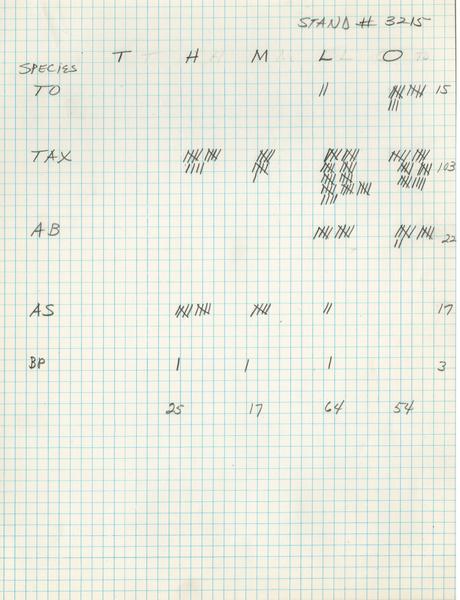 STAND # 3215
SPECIES T H M L O
TO 15
TAX 103
AB 22
AS 17
BP 3
25 17 64 54